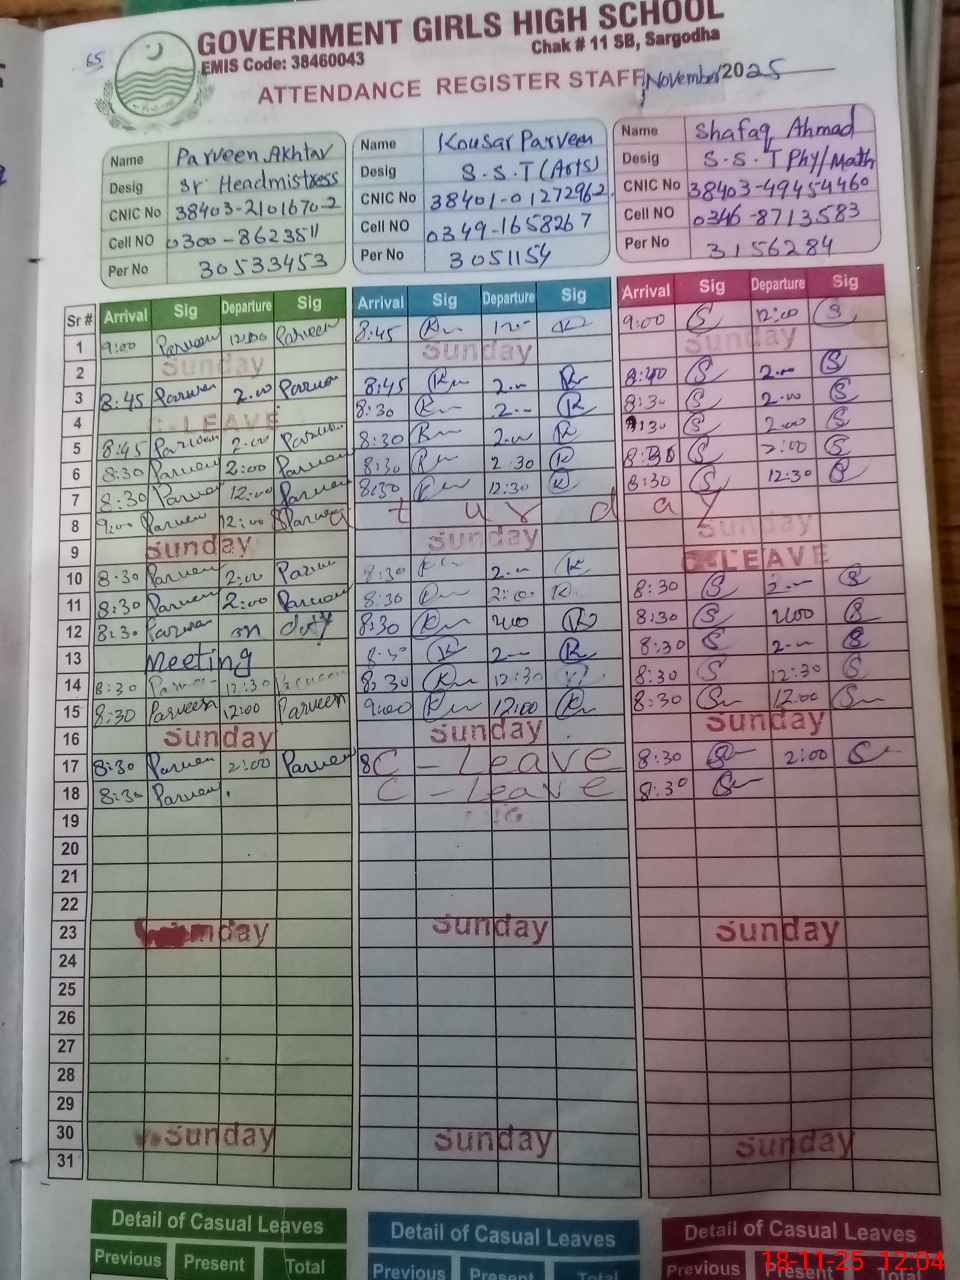 65
GOVERNMENT GIRLS HIGH SCHOOL
EMIS Code: 38460043 Chak # 11 SB, Sargodha
ATTENDANCE REGISTER STAFF, November 2025
Name Parveen Akhtar Name Kousar Parveen Name Shafaq Ahmad
Desig Sr. Headmistress Desig S.S.T (Arts) Desig S.S.T Phy/Math
CNIC No 38403-2101670-2 CNIC No 38401-0127296-2 CNIC No 38403-4945446-0
Cell NO 0300-8623511 Cell NO 0349-1658267 Cell NO 0346-8713583
Per No 30533453 Per No 3051154 Per No 3156284
Sr # Arrival Sig Departure Sig Arrival Sig Departure Sig Arrival Sig Departure Sig
1 9:00 Parveen 12:00 Parveen 8:45 12:00 9:00 S 12:00 S
2 Sunday Sunday Sunday
3 8:45 Parveen 2:00 Parveen 8:45 2:00 8:40 S 2:00 S
4 C-LEAVE 8:30 2:00 8:30 S 2:00 S
5 8:45 Parveen 2:00 Parveen 8:30 2:00 S 2:00 S
6 8:30 Parveen 2:00 Parveen 8:30 2:30 S 2:00 S
7 8:30 Parveen 12:00 Parveen 8:30 12:30 8:30 S 12:30 S
8 9:00 Parveen 12:00 Parveen S a t u r d a y
9 Sunday Sunday Sunday
10 8:30 Parveen 2:00 Parveen 8:30 2:00 LEAVE
11 8:30 Parveen 2:00 Parveen 8:30 2:00 8:30 S 2:00 S
12 8:30 Parveen on duty 8:30 2:00 8:30 S 2:00 S
13 Meeting 8:30 2:00 8:30 S 2:00 S
14 8:30 Parveen 12:30 Parveen 8:30 12:30 8:30 S 12:30 S
15 8:30 Parveen 12:00 Parveen 9:00 12:00 8:30 12:00
16 Sunday Sunday Sunday
17 8:30 Parveen 2:00 Parveen 8 C - Leave 8:30 2:00
18 8:30 Parveen C - Leave 8:30
19
20
21
22
23 Sunday Sunday Sunday
24
25
26
27
28
29
30 Sunday Sunday Sunday
31
Detail of Casual Leaves Detail of Casual Leaves Detail of Casual Leaves
Previous Present Total Previous Present Total Previous Present Total
18-11-25 12:04